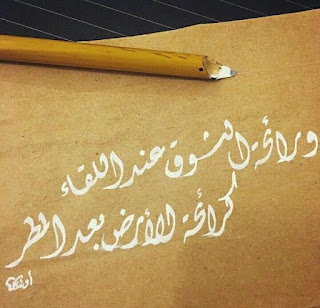 ورائحة الشوق عند اللقاء
كرائحة الأرض بعد المطر